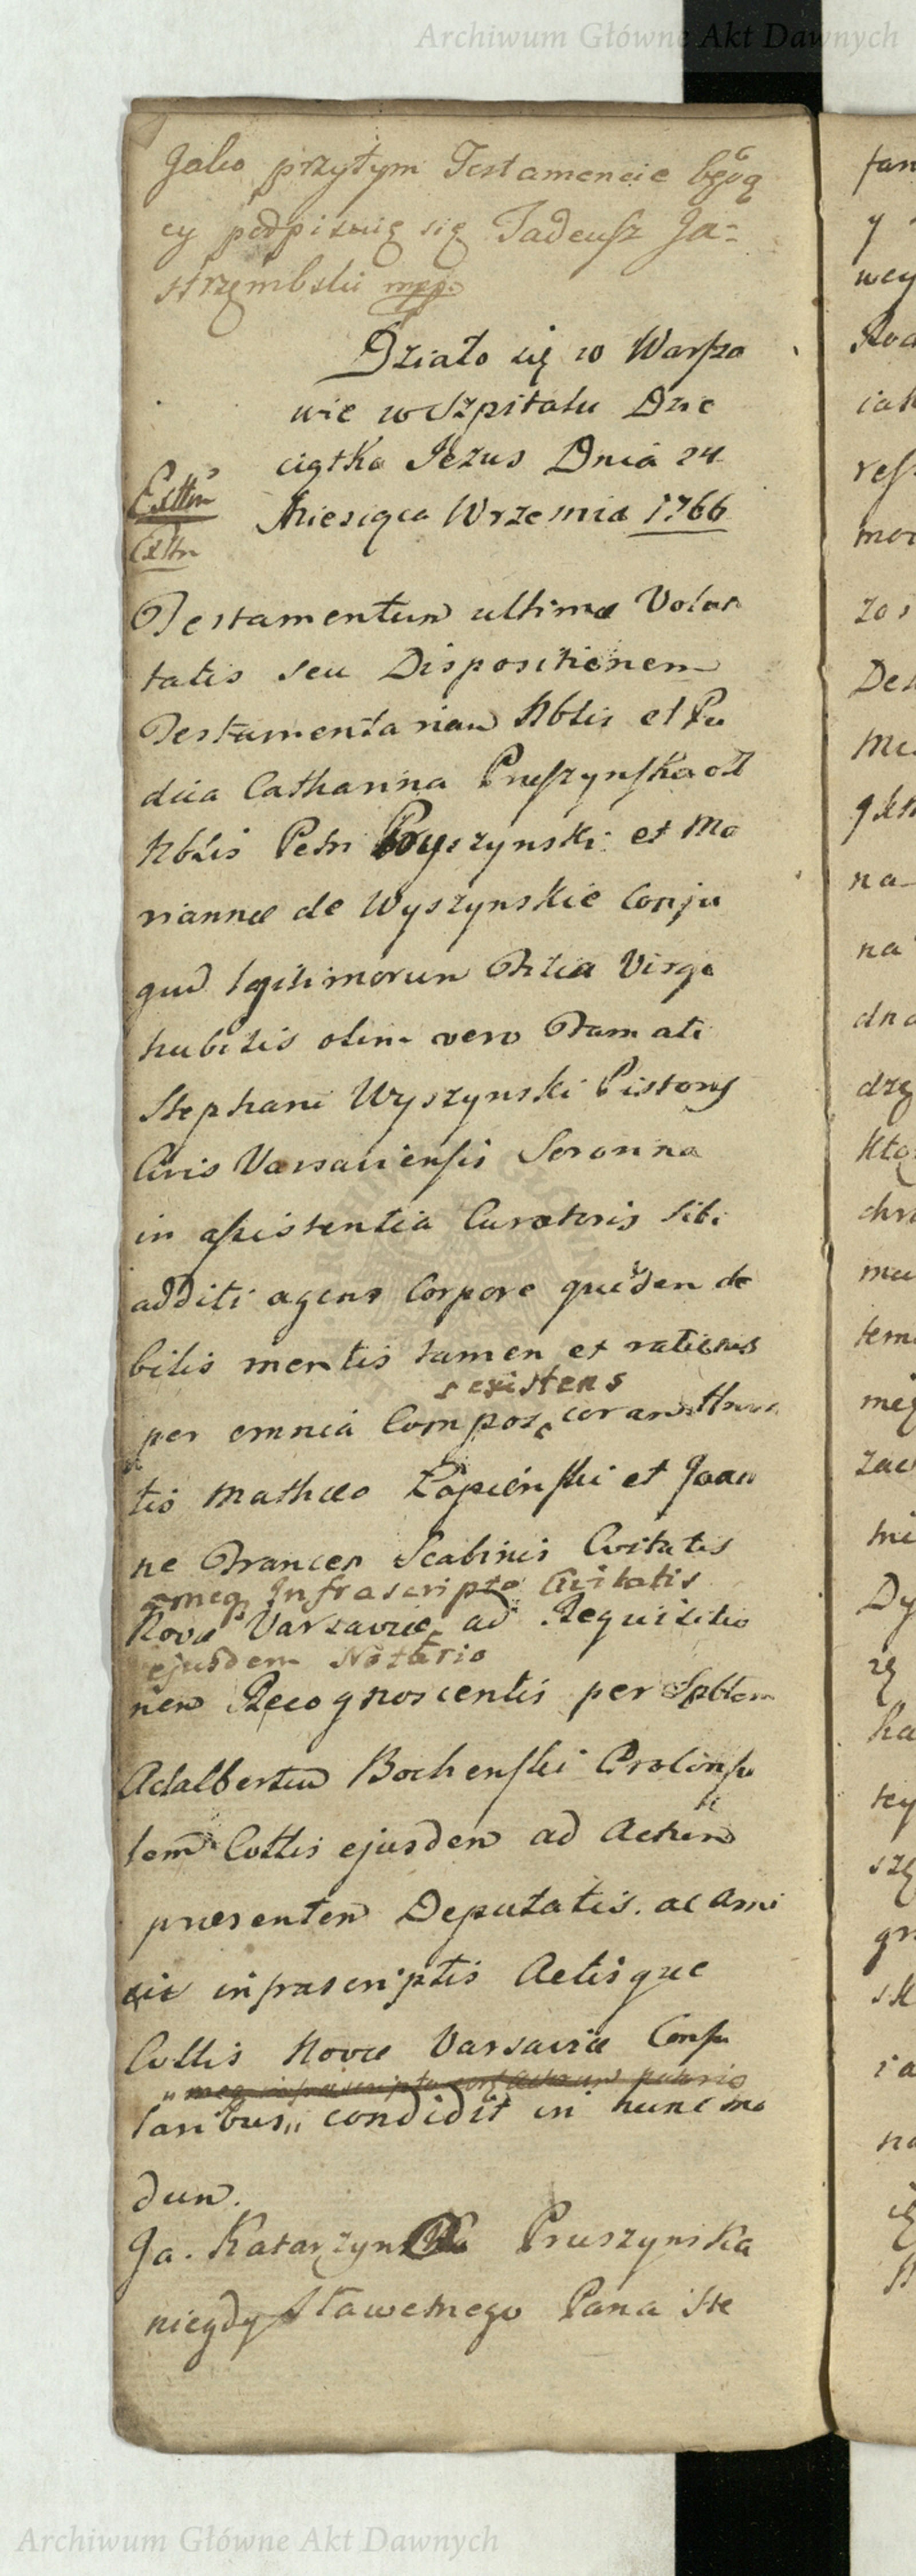 Archiwum Główne Akt Dawnych
Jako przytym Testamencie będą
cy podpisuię się Tadeusz Ja=
strzembski mpp.
Działo się w Warsza
wie w Szpitalu Dzie
ciątka Jezus Dnia 24
Miesiąca Wrzesnia 1766
Exttm
Exttm
Testamentum ultimæ Volun
tatis seu Dispositionem
Testamentariam Nblis et Pu
dica Catharina Pruszynska olt
Nblis Petri Pruszynski et Ma
riannæ de Wyszynskie Conju
gum legitimorum Filia Virgo
nubilis olim vero Famati
Stephani Wyszynski Pistoris
Civis Varsaviensis
in assistentia Curatoris sibi
additi agens Corpore quidem de
bilis mentis tamen et rationis
existens
per omnia Compos, coram
tis Mathæo Łapienski et Joan
ne Francer Scabinis Civitatis
meq Infrascripto Civitatis
Novæ Varsaviæ ad Requisitio
ejusdem Notario
nem Recognoscentis per Spblem
Adalbertum Bochenski Proconsu
lem Cvttis ejusdem ad Actum
præsentem Deputatis. ac Ami
cis infrascriptis Actisque
Cvttis Novæ Varsaviæ Consu
laribus,, condidit in hunc mo
dum.
Ja. Katarzyna Pruszynska
niegdy Sławetnego Pana Ste
fan
y
wey
ciał
res
mo
zos
De
na
na
dna
drę
któ
chr
mu
tem
mię
zac
mi
Dy
rę
ha
tey
szę
gr
sk
ia
na
Archiwum Główne Akt Dawnych